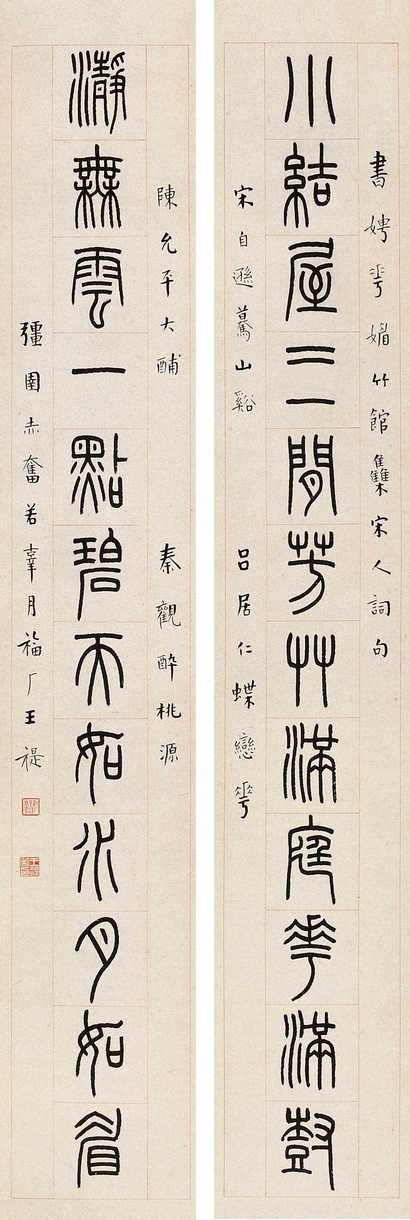 書娉華媚竹館雧宋人詞句
小結屋三間芳艸滿庭華滿尌
宋自遜驀山谿 呂居仁蝶戀華
陳允平大酺 秦觀醉桃源
瀞無雲一點碧天如水月如眉
彊圉赤奮若辜月福厂王禔